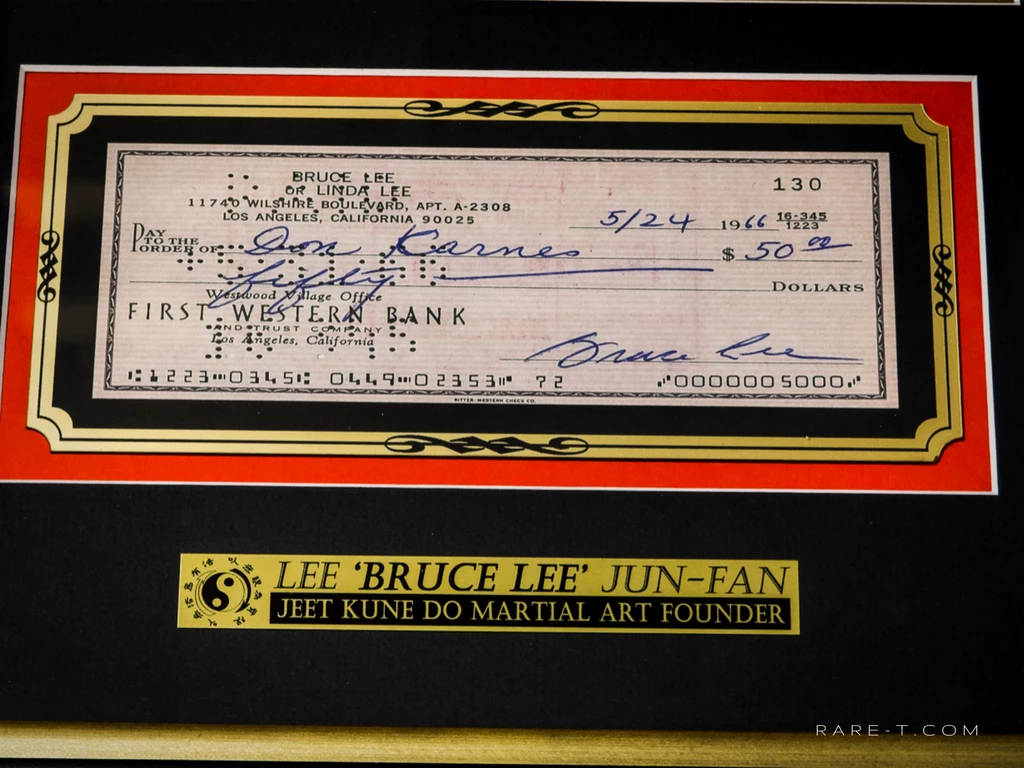 BRUCE LEE
OR LINDA LEE
11740 WILSHIRE BOULEVARD, APT. A-2308
LOS ANGELES, CALIFORNIA 90025
130
5/24 1966 16-345
1223
PAY
TO THE
ORDER OF Don Karnes $ 50 00
fifty DOLLARS
Westwood Village Office
FIRST WESTERN BANK
AND TRUST COMPANY
Los Angeles, California
Bruce Lee
⑆1223⑉0345⑆ 0449⑉02353⑈ 72 ⑇0000005000⑇
RITTER-WESTERN CHECK CO.
LEE ‘BRUCE LEE’ JUN-FAN
JEET KUNE DO MARTIAL ART FOUNDER
RARE-T.COM